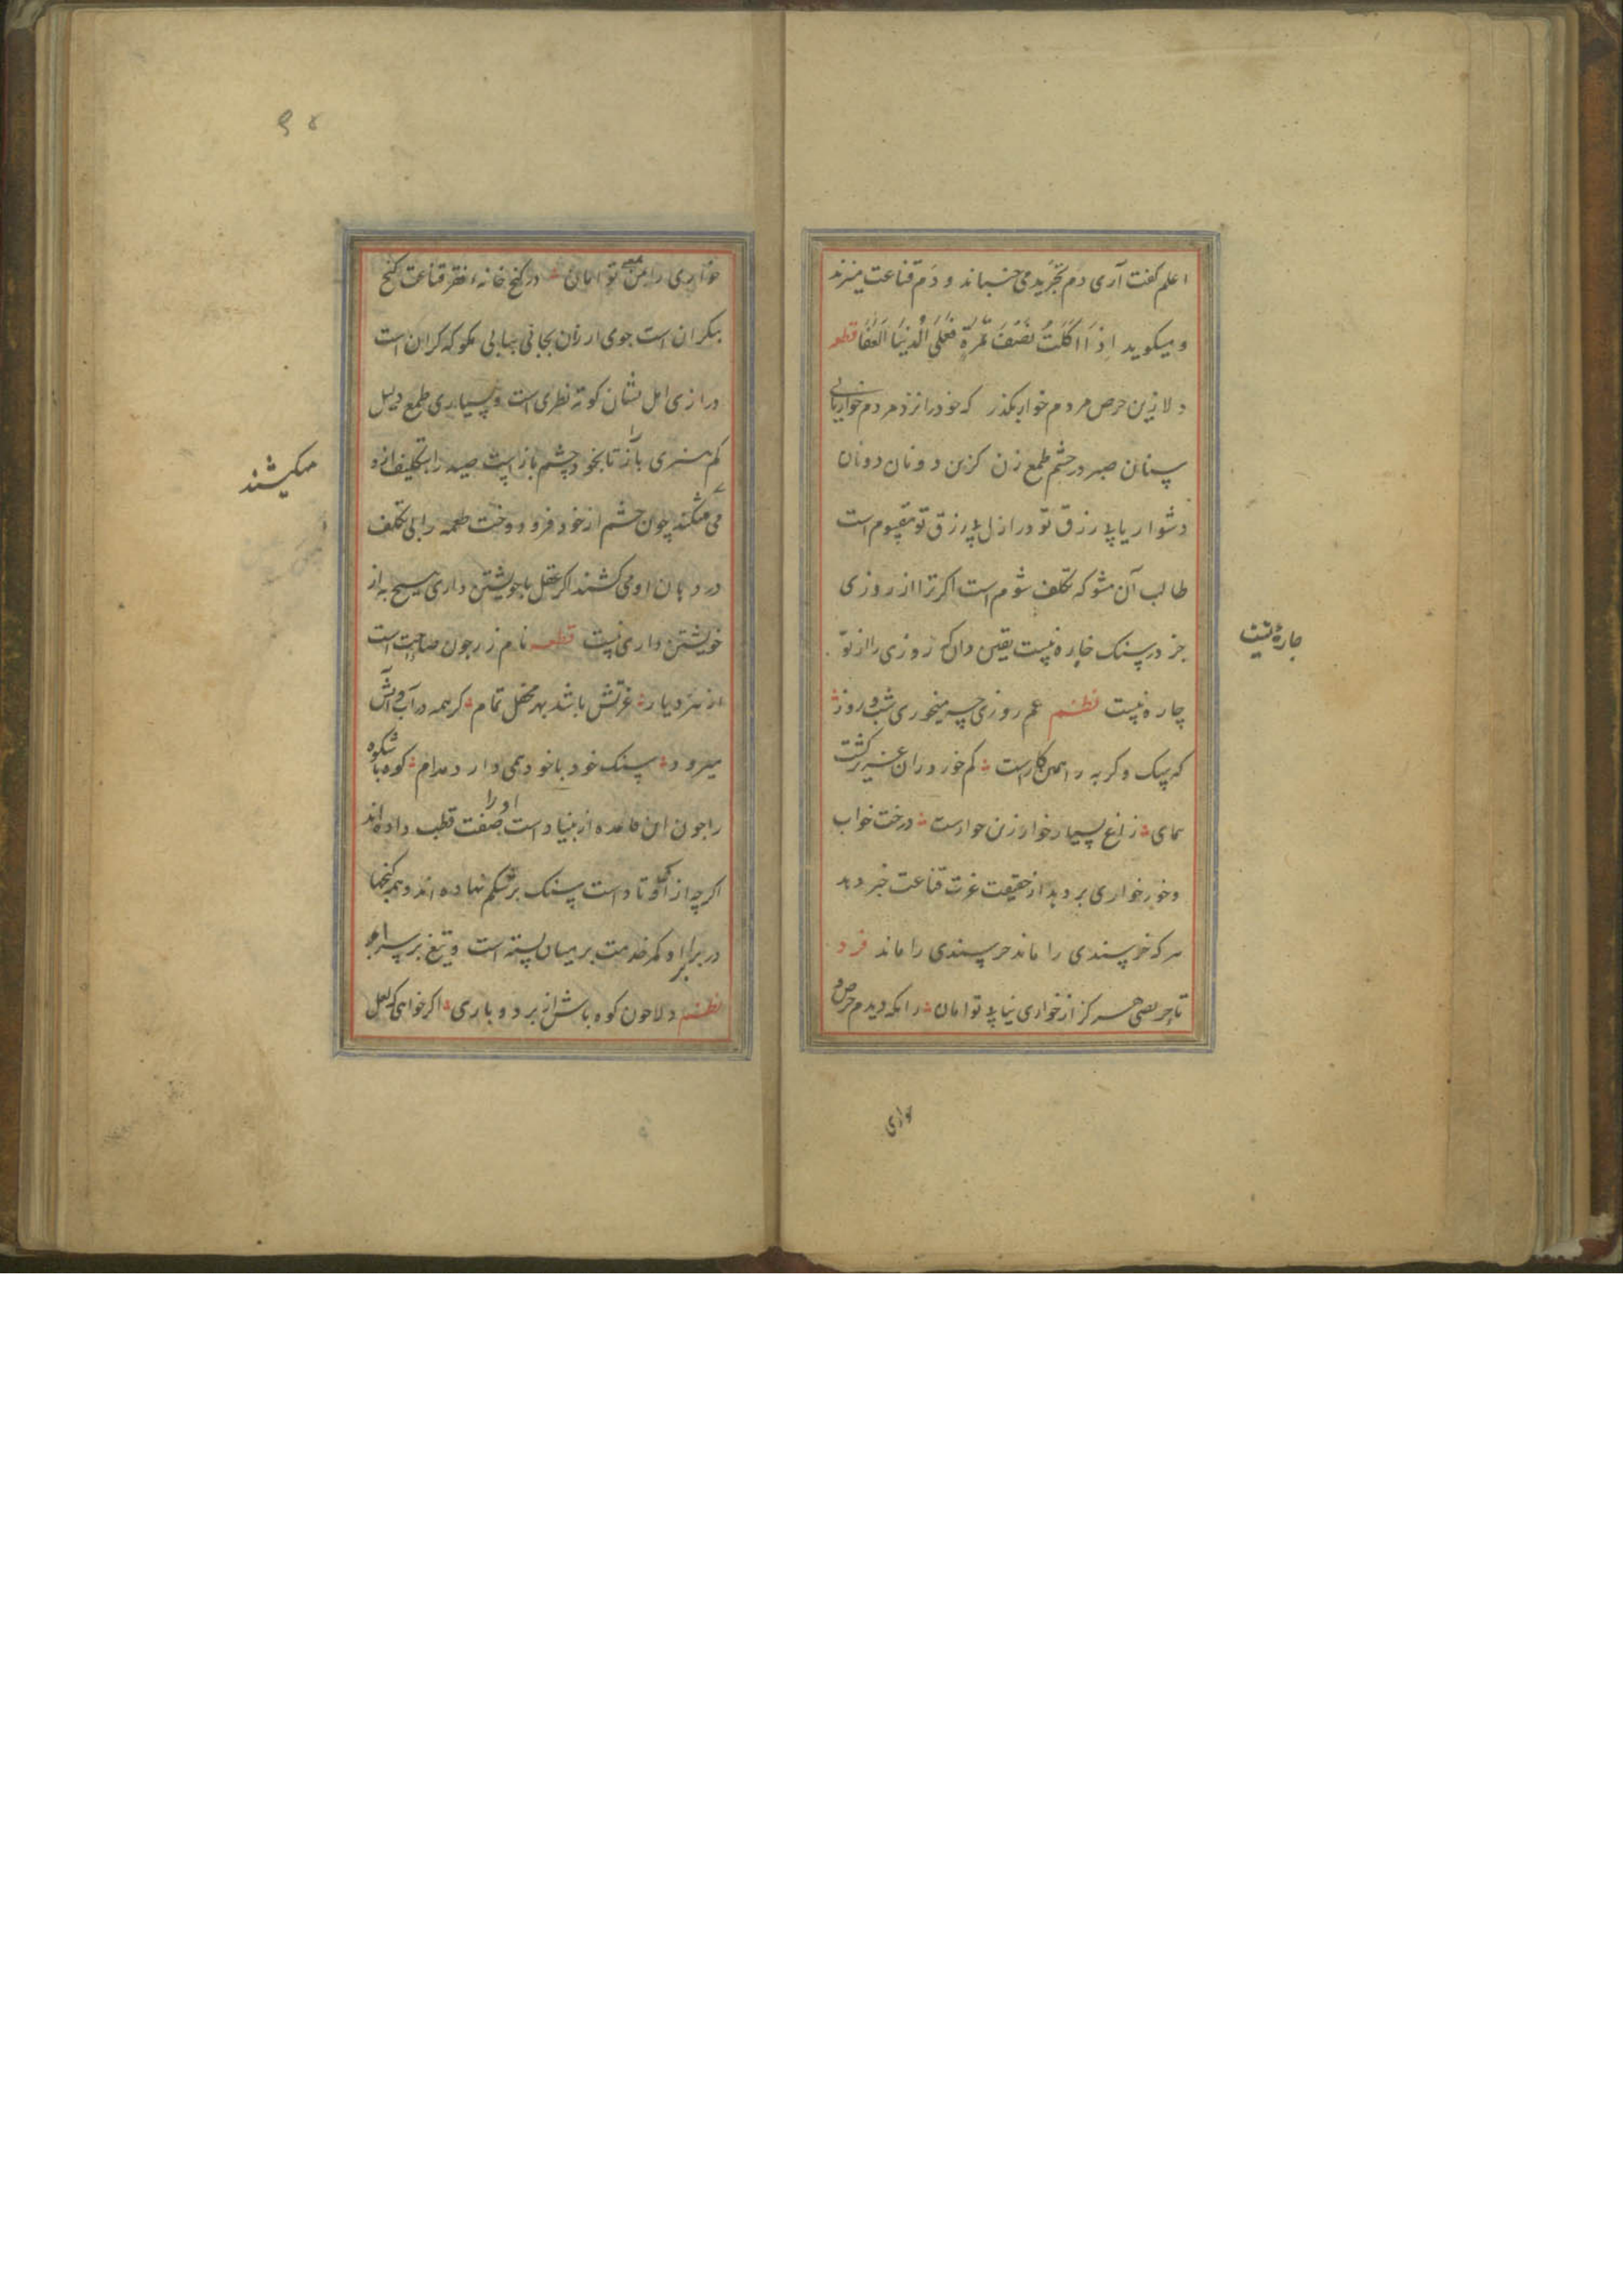 اعلم کفت آری دم تجرید می جنباند و دم قناعت میزند
و میکوید اِذَا اَکَلتُ نصفَ تمرةٍ فعلی الدنیا العفا قطعه
دلا زین حرص مردم خوار بکذر که خود را نزد مردم خوار یابی
سنان صبر در چشم طمع زن کزین دونان دونان
دشوار یابد رزق تو در ازل بد رزق تو مقسوم است
طالب آن مشو که تکلف شوم است اکر ترا از روزی
جز در سنک خاره نیست یقین دان که روزی را از تو
چاره نیست نظم غم روزی چه میخوری شب و روز
که سک و کربه را همین کارست کم خور و ران شیر کشت
همای زاغ بسیار خوار زن خوارست درخت خواب
و خور خواری بر دهد از حقیقت عزت قناعت خبر دهد
هر که خرسندی را ماند خرسندی را ماند فرد
تا حریصی هرکز از خواری نیابد تو امان زانکه دیدم حرص و
وای
چاره نیست
خواری را من توامان در کنج خانه فقر قناعت کنج
بیکران است جوی ارزان بجانی بیابی مکو که کران است
درازی امل نشان کوته نظری است و بسیاری طمع دلیل
کم هنری باز را تا بخود چشم باز است صید را بتکلیف ازو
می چون چشم از خود فرو دوخت طعمه را بی تکلف
در دهان او می کشند اکر عقل با خویشتن داری هیچ به از
خویشتن داری نیست قطعه نام زر چون صاحب است
از هر دیار عزتش باشد بهر محفل تمام کر همه در آب و آتش
میرود سنک خود با خود همی دارد مدام کوه با شکوه
را چون این قاعده از بنیاد است او را صفت قطب داده اند
اکر چه از اوتاد است سنک بر شکم نهاده اند و همه کنجها
در بر او کمر خدمت بر میان بسته است و تیغ بر سر او
نظم دلا چون کوه باش از بردباری اکر خواهی که لعل
میکشند